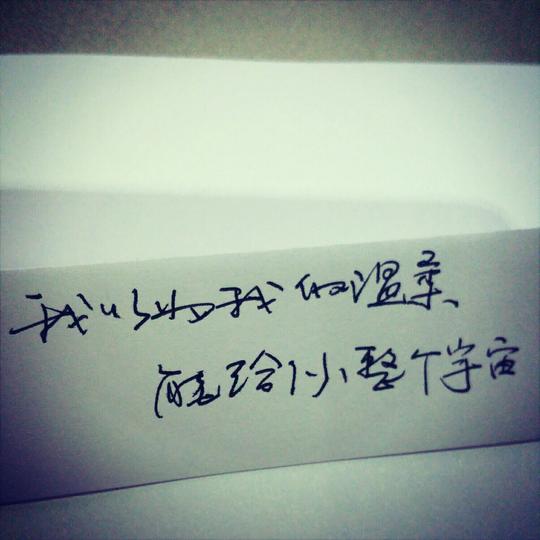 我以为我的温柔
能给你整个宇宙